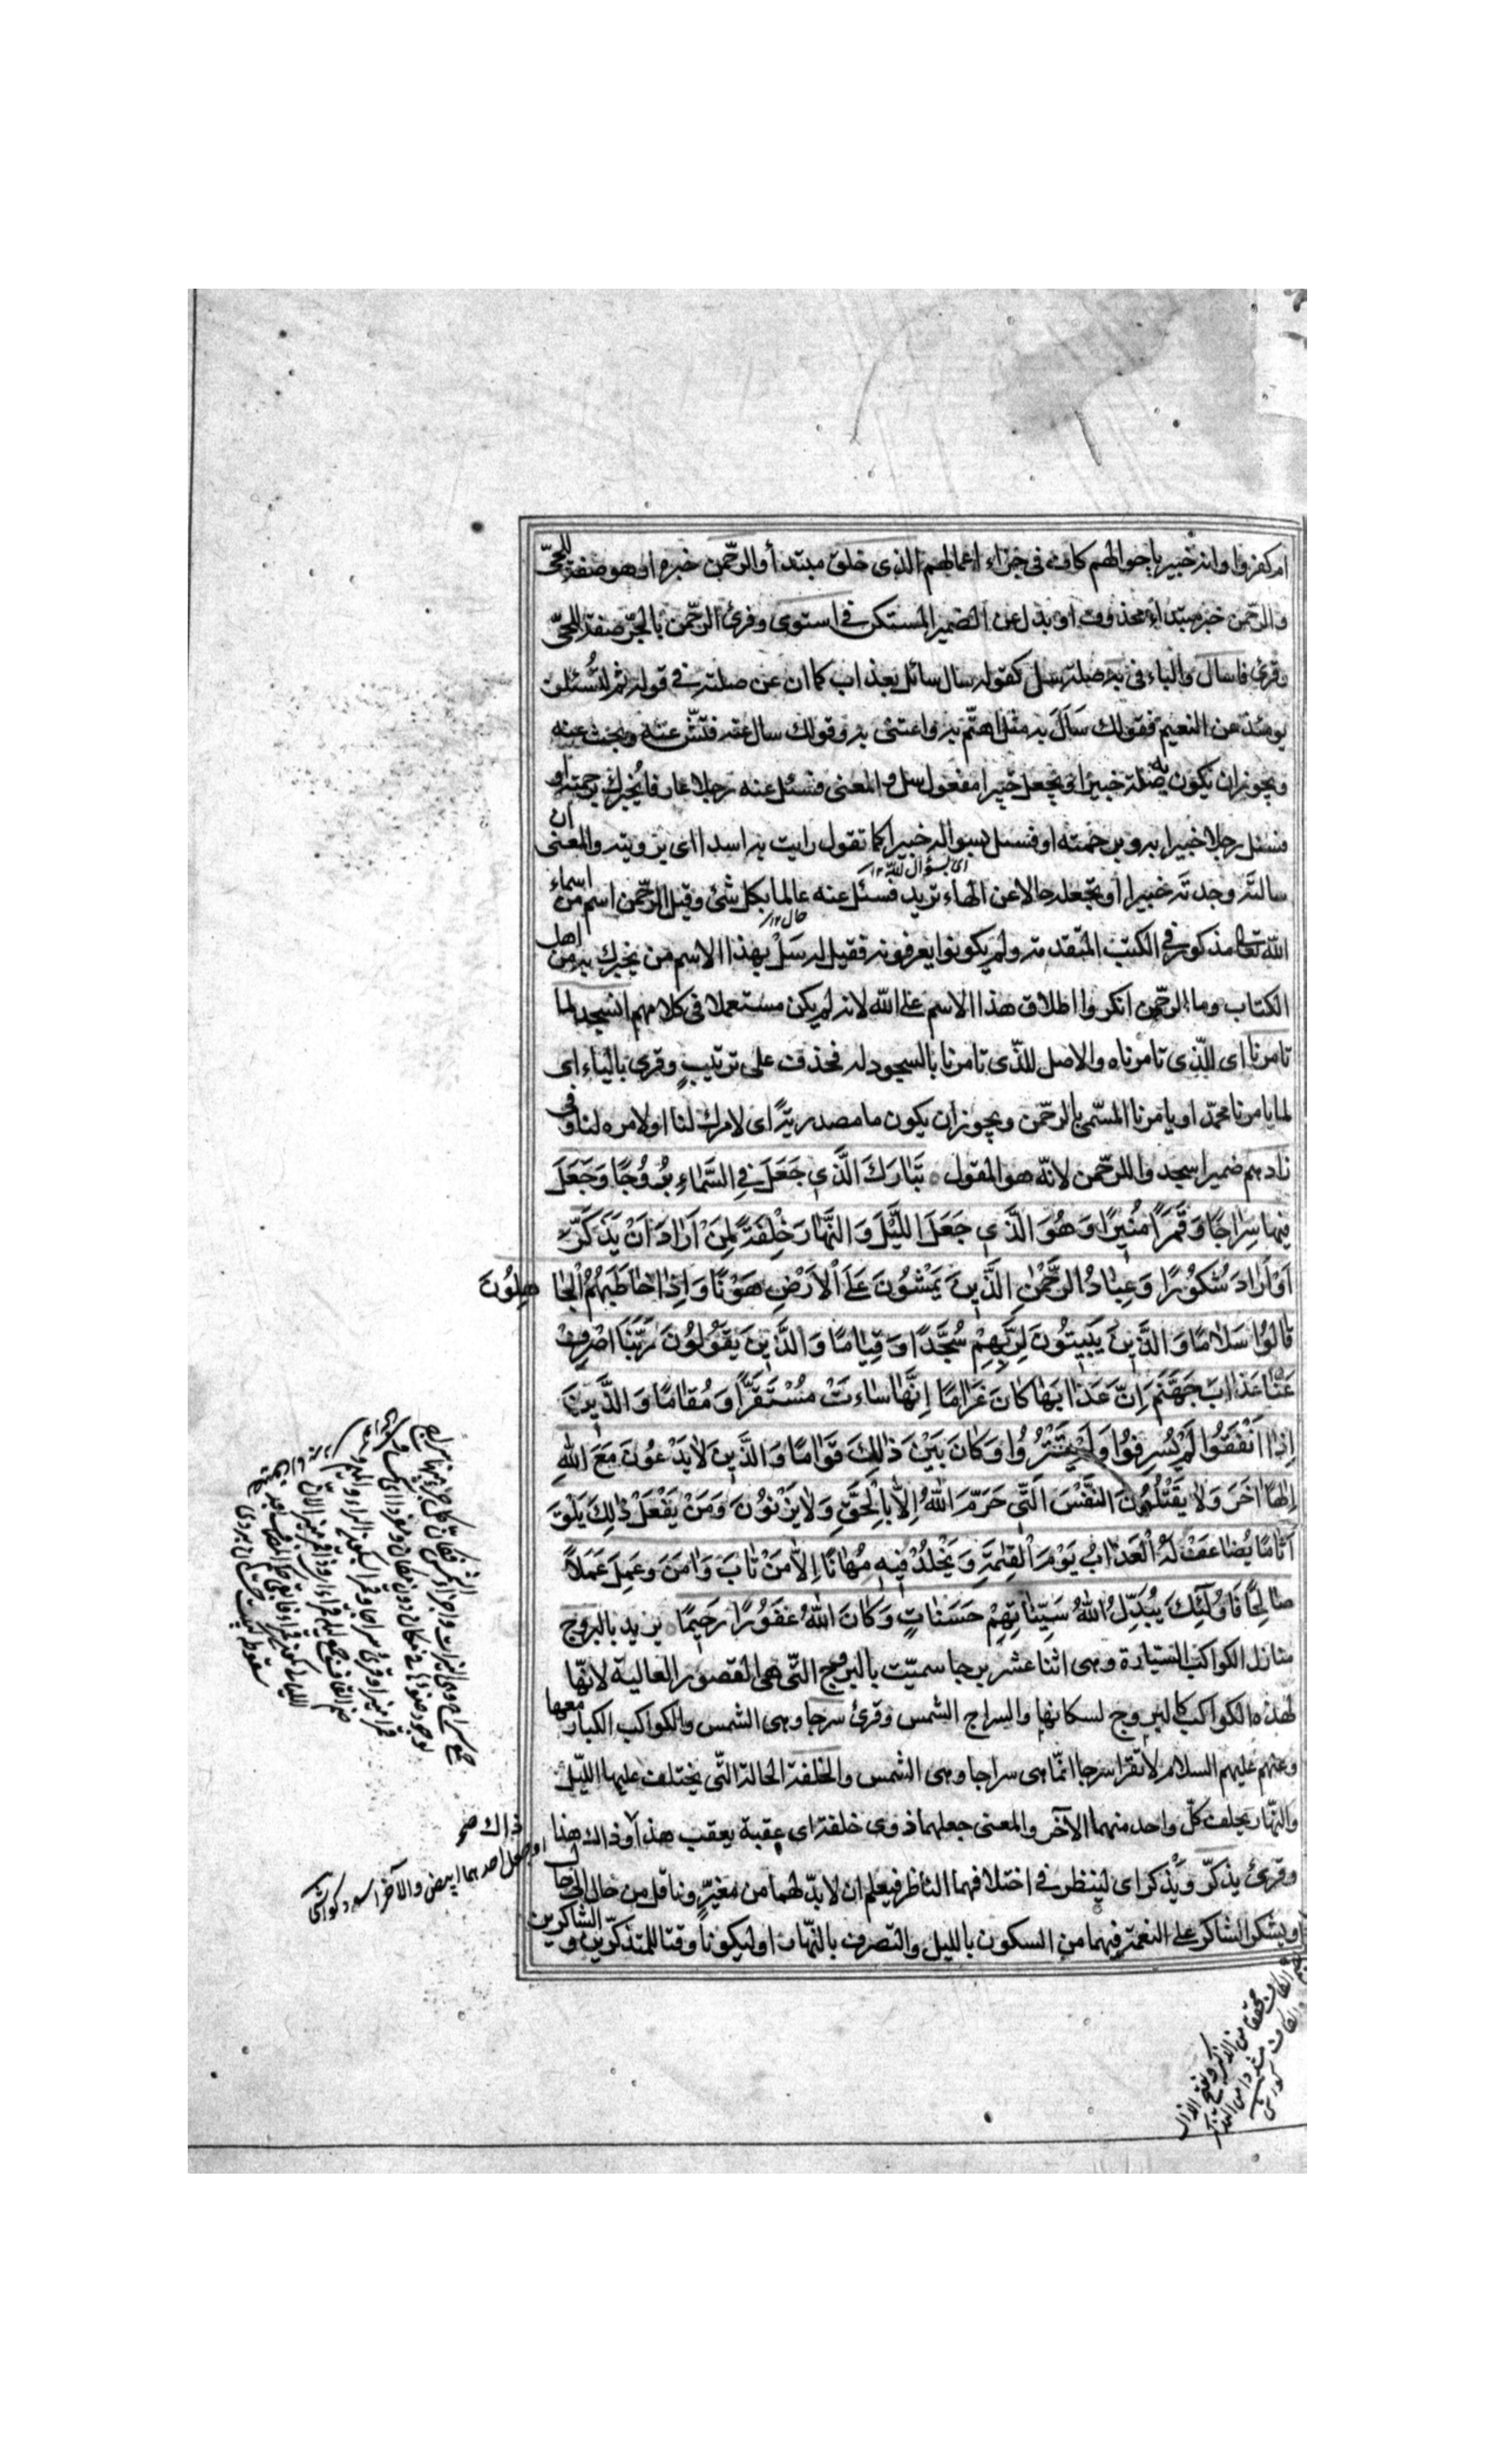 ام كفروا وانه خبير باحوالهم كاف فى جزاء اعمالهم الذى خلق مبتدأ والرّحمن خبره او هو صفة للحىّ
والرّحمن خبر مبتداء محذوف او بدل عن الضمير المستكن فى استوى وقرئ الرّحمن بالجرّ صفة للحىّ
وقرئ فاسال والباء فى به صلة سل كقوله سال سائل بعذاب كما ان عن صلته فى قوله ثم لتُسئلن
يومئذ عن النعيم فقولك سَاَلَ به مثل اهتمّ به واعتنى به وقولك سال عنه فتّش عنه وبحث عنه
ويجوز ان يكون به صلة خبيرا اى يجعل خبيرا مفعول سل والمعنى فسئل عنه رجلا عارفا يُخبرك برحمته او
فسئل رجلا خبيرا به وبرحمته او فسئل بسواله خبيرا كما تقول رايت به اسدا اى برويته والمعنى ان
اى بسؤال للّه ١٢
سالتَه وجدتَه خبيرا او تجعله حالا عن الهاء تريد فسئل عنه عالما بكل شئ وقيل الرّحمن اسم من اسماء
حال ١٢
اللّه تعا مذكور فى الكتب المتقدمة ولم يكونوا يعرفونه فقيل له سَلْ بهذا الاسم من يخبرك به من اهل
الكتاب وما الرحمن انكروا اطلاق هذا الاسم على اللّه لانه لم يكن مستعملا فى كلامهم انسجد لما
تامرنا اى للّذى تامرناه والاصل للذّى تامرنا بالسجود له فحذف على ترتيبٍ وقرئ بالياء اى
لما يامرنا محمّد او يامرنا المسمّى بالرحمن ويجوز ان يكون ما مصدريّة اى لامرك لنا او لامره لنا وفى
زادهم ضمير اسجدوا للرحمن لانّه هو المقول ه تَبَارَكَ الَّذِي جَعَلَ فِي السَّمَاءِ بُرُوجًا وَجَعَلَ
فِيهَا سِرَاجًا وَقَمَرًا مُنِيرًا وَهُوَ الَّذِي جَعَلَ اللَّيْلَ وَالنَّهَارَ خِلْفَةً لِمَنْ اَرَادَ اَنْ يَذَّكَّرَ
اَوْ اَرَادَ شُكُورًا وَعِبَادُ الرَّحْمٰنِ الَّذِينَ يَمْشُونَ عَلَى الْاَرْضِ هَوْنًا وَاِذَا خَاطَبَهُمُ الْجَاهِلُونَ
قَالُوا سَلَامًا وَالَّذِينَ يَبِيتُونَ لِرَبِّهِمْ سُجَّدًا وَقِيَامًا وَالَّذِينَ يَقُولُونَ رَبَّنَا اصْرِفْ
عَنَّا عَذَابَ جَهَنَّمَ اِنَّ عَذَابَهَا كَانَ غَرَامًا اِنَّهَا سَاءَتْ مُسْتَقَرًّا وَمُقَامًا وَالَّذِينَ
اِذَا اَنْفَقُوا لَمْ يُسْرِفُوا وَلَمْ يَقْتُرُوا وَكَانَ بَيْنَ ذٰلِكَ قَوَامًا وَالَّذِينَ لَا يَدْعُونَ مَعَ اللّٰهِ
اِلٰهًا اٰخَرَ وَلَا يَقْتُلُونَ النَّفْسَ الَّتِي حَرَّمَ اللّٰهُ اِلَّا بِالْحَقِّ وَلَا يَزْنُونَ وَمَنْ يَفْعَلْ ذٰلِكَ يَلْقَ
اَثَامًا يُضَاعَفْ لَهُ الْعَذَابُ يَوْمَ الْقِيٰمَةِ وَيَخْلُدْ فِيهِ مُهَانًا اِلَّا مَنْ تَابَ وَاٰمَنَ وَعَمِلَ عَمَلًا
صَالِحًا فَاُولٰئِكَ يُبَدِّلُ اللّٰهُ سَيِّئَاتِهِمْ حَسَنَاتٍ وَكَانَ اللّٰهُ غَفُورًا رَحِيمًا ه يريد بالبروج
منازل الكواكب السّيارة وهى اثنا عشر برجا سميّت بالبروج التّى هى القصور العالية لانّها
لهذه الكواكب كالبروج لسكانها والسراج الشمس وقرئ سرجا وهى الشمس والكواكب الكبار معها
وعنهم عليهم السلام لا تقرا سرجا انّما هى سراجا وهى الشمس والخلفة الحالة التّى يختلف عليها اللّيل
والنّهار يخلف كلّ واحد منهما الآخر والمعنى جعلهما ذوى خلفة اى عقبة يعقب هذا وذاك هذا
ذاك صح
وقرئ يذكّر ويَذْكر اى لينظر فى اختلافهما الناظر فيعلم ان لا بدّ لهما من مغيّرٍ وناقل من حال الى حال
او جعل احدهما ابيض والآخر اسود كواشى
او يشكر الشاكر على النعمة فيهما من السكون بالليل والتصرف بالنّهار او ليكونا وقتا للمتذكّرين والشاكرين